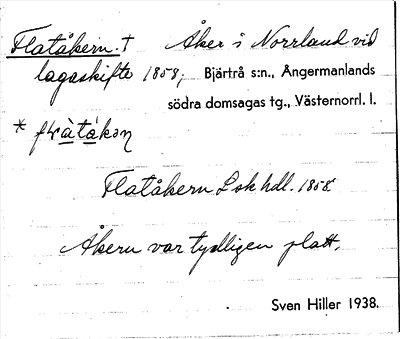 Flatåkern. † Åker i Norrland vid
lagaskifte 1858; Bjärtrå s:n., Ångermanlands
södra domsagas tg., Västernorrl. l.
Flatåkern Lsk hdl. 1858
Åkern var tydligen platt.
Sven Hiller 1938.